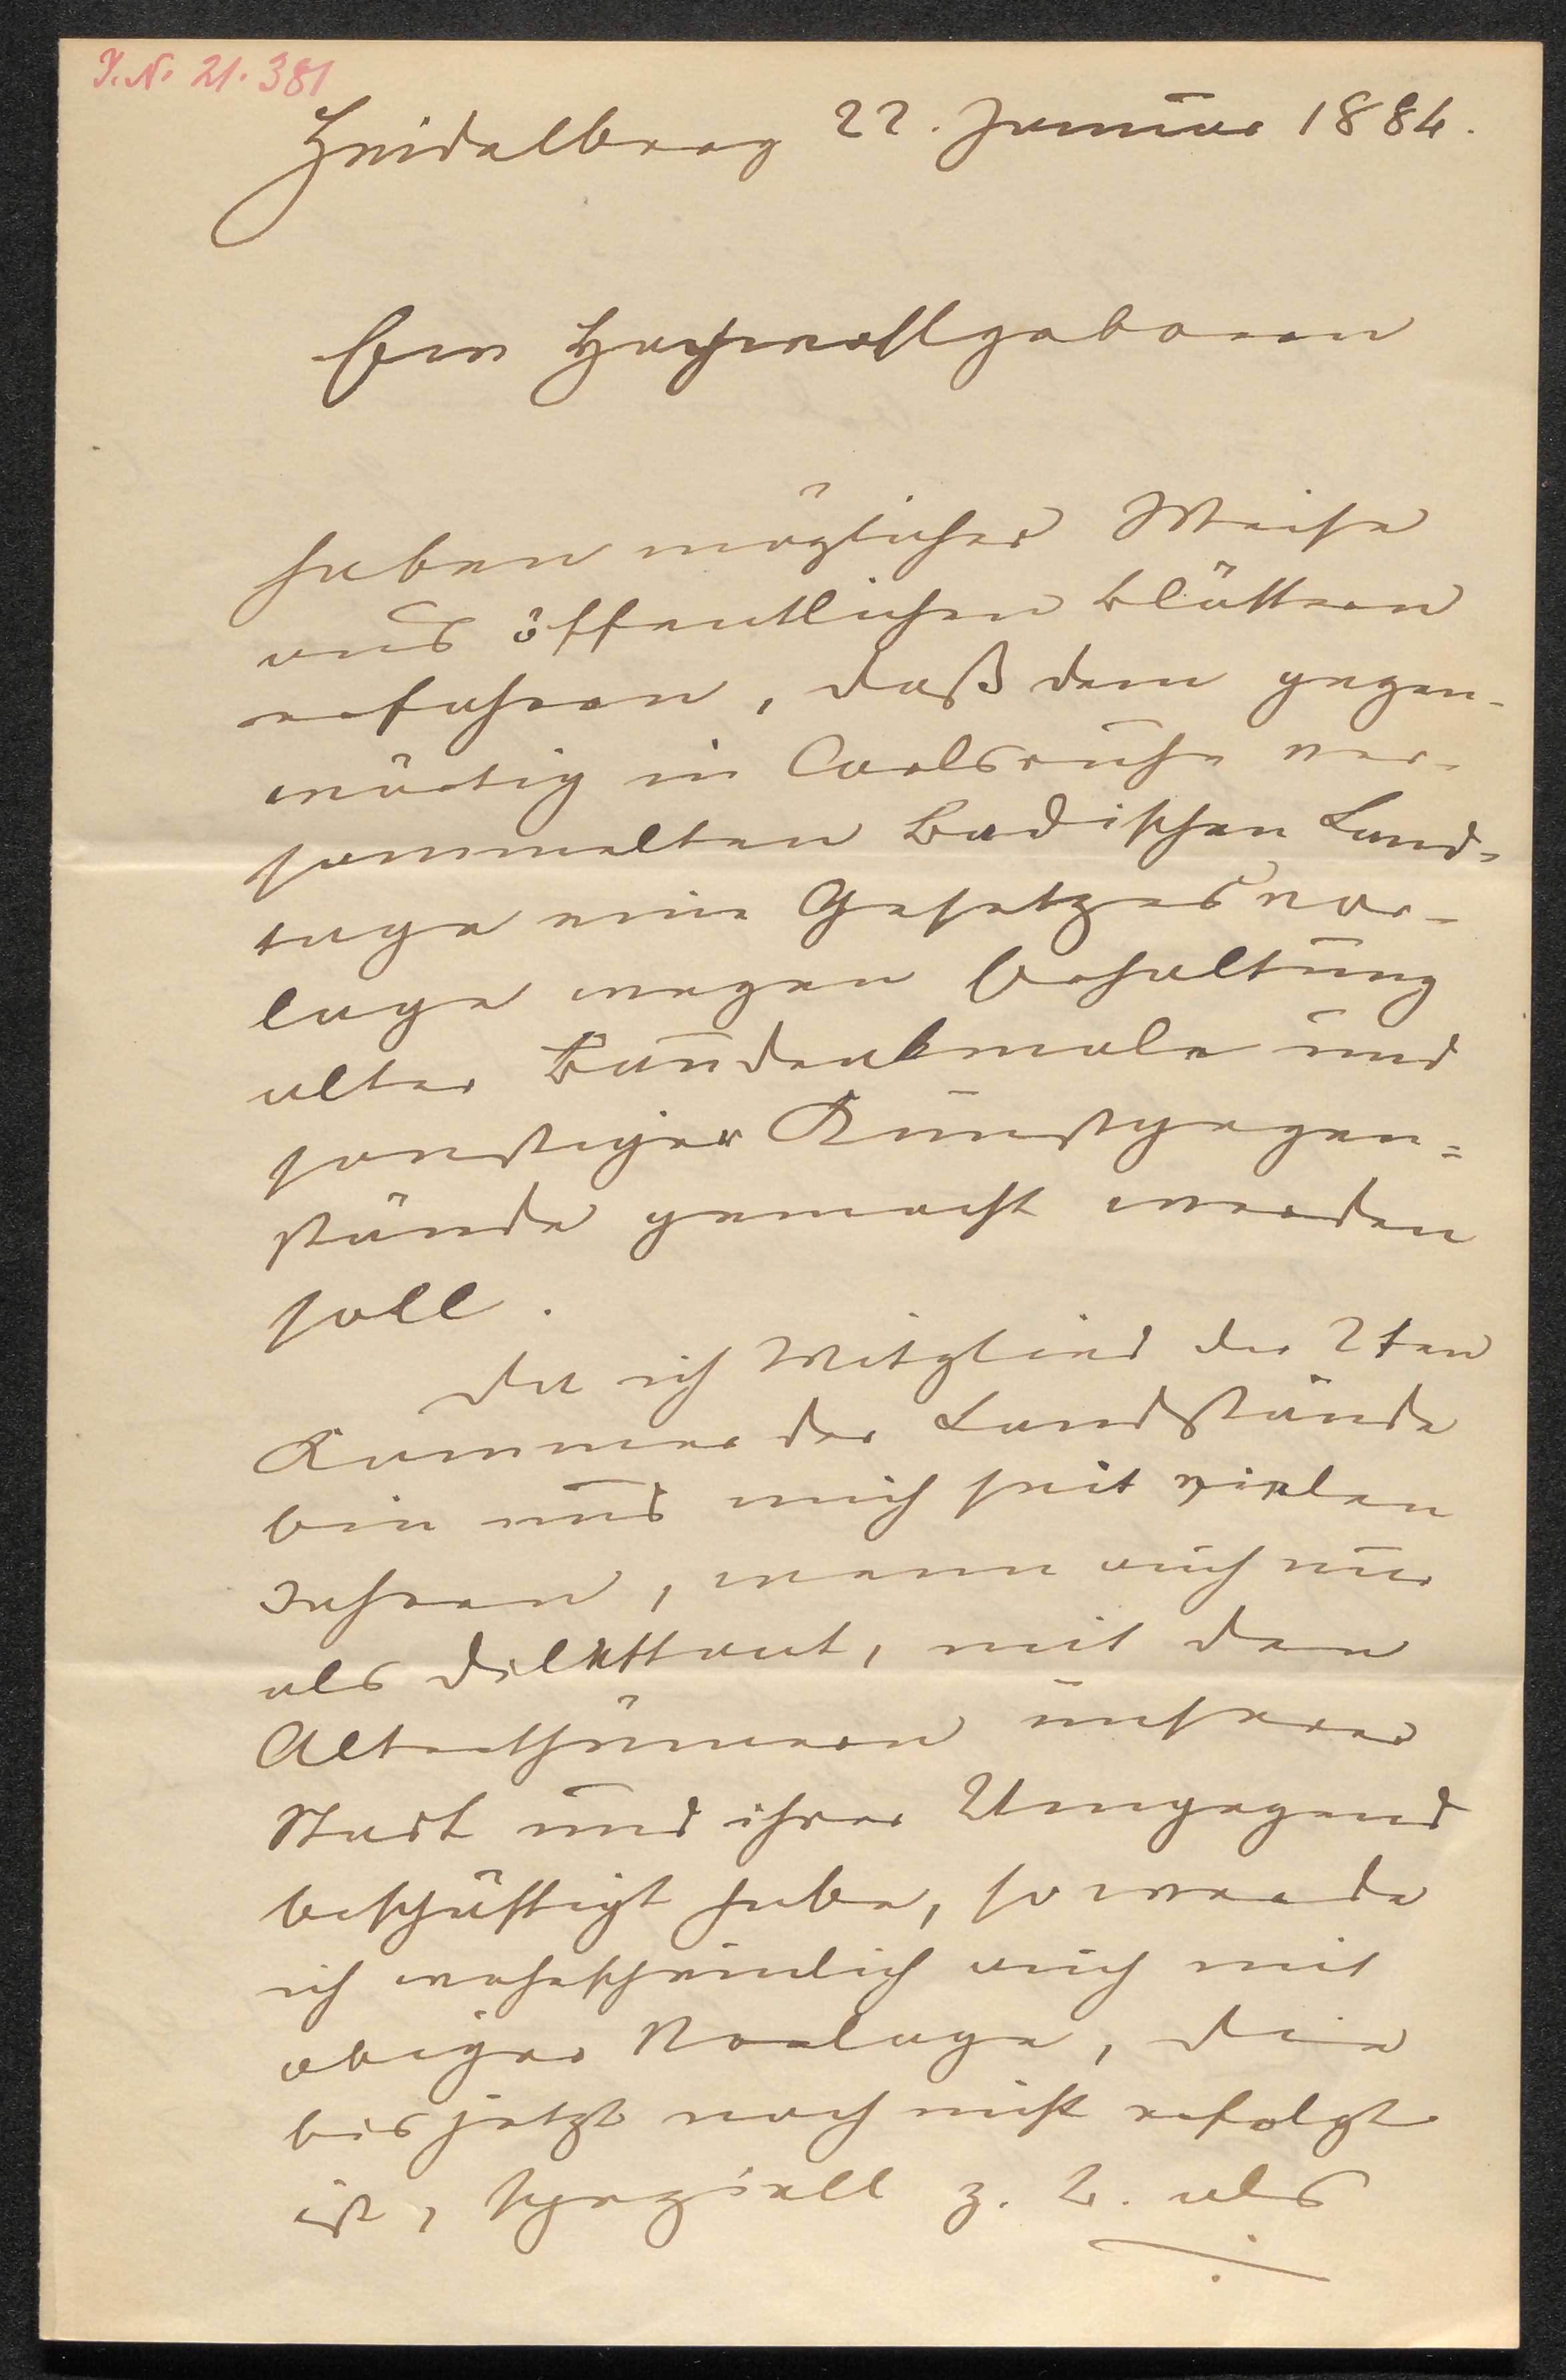 I. N. 21.381
Heidelberg 22. Januar 1884.
Euer Hochwohlgeboren
haben möglicher Weise
aus öffentlichen Blättern
erfahren, daß dem gegen-
wärtig in Carlsruhe ver-
sammelten Badischen Land-
tage eine Gesetzesvor-
lage wegen Erhaltung
alter Baudenkmale und
sonstiger Kunstgegen=
stände gemacht werden
soll.
Da ich Mitglied der 2ten
Kammer der Landstände
bin und mich seit vielen
Jahren, wenn auch nur
als Dilettant, mit den
Alterthümern unserer
Stadt und ihrer Umgegend
beschäftigt habe, so werde
ich wahrscheinlich auch mit
obiger Vorlage, die
bis jetzt noch nicht erfolgt
ist, speziell z. B. als